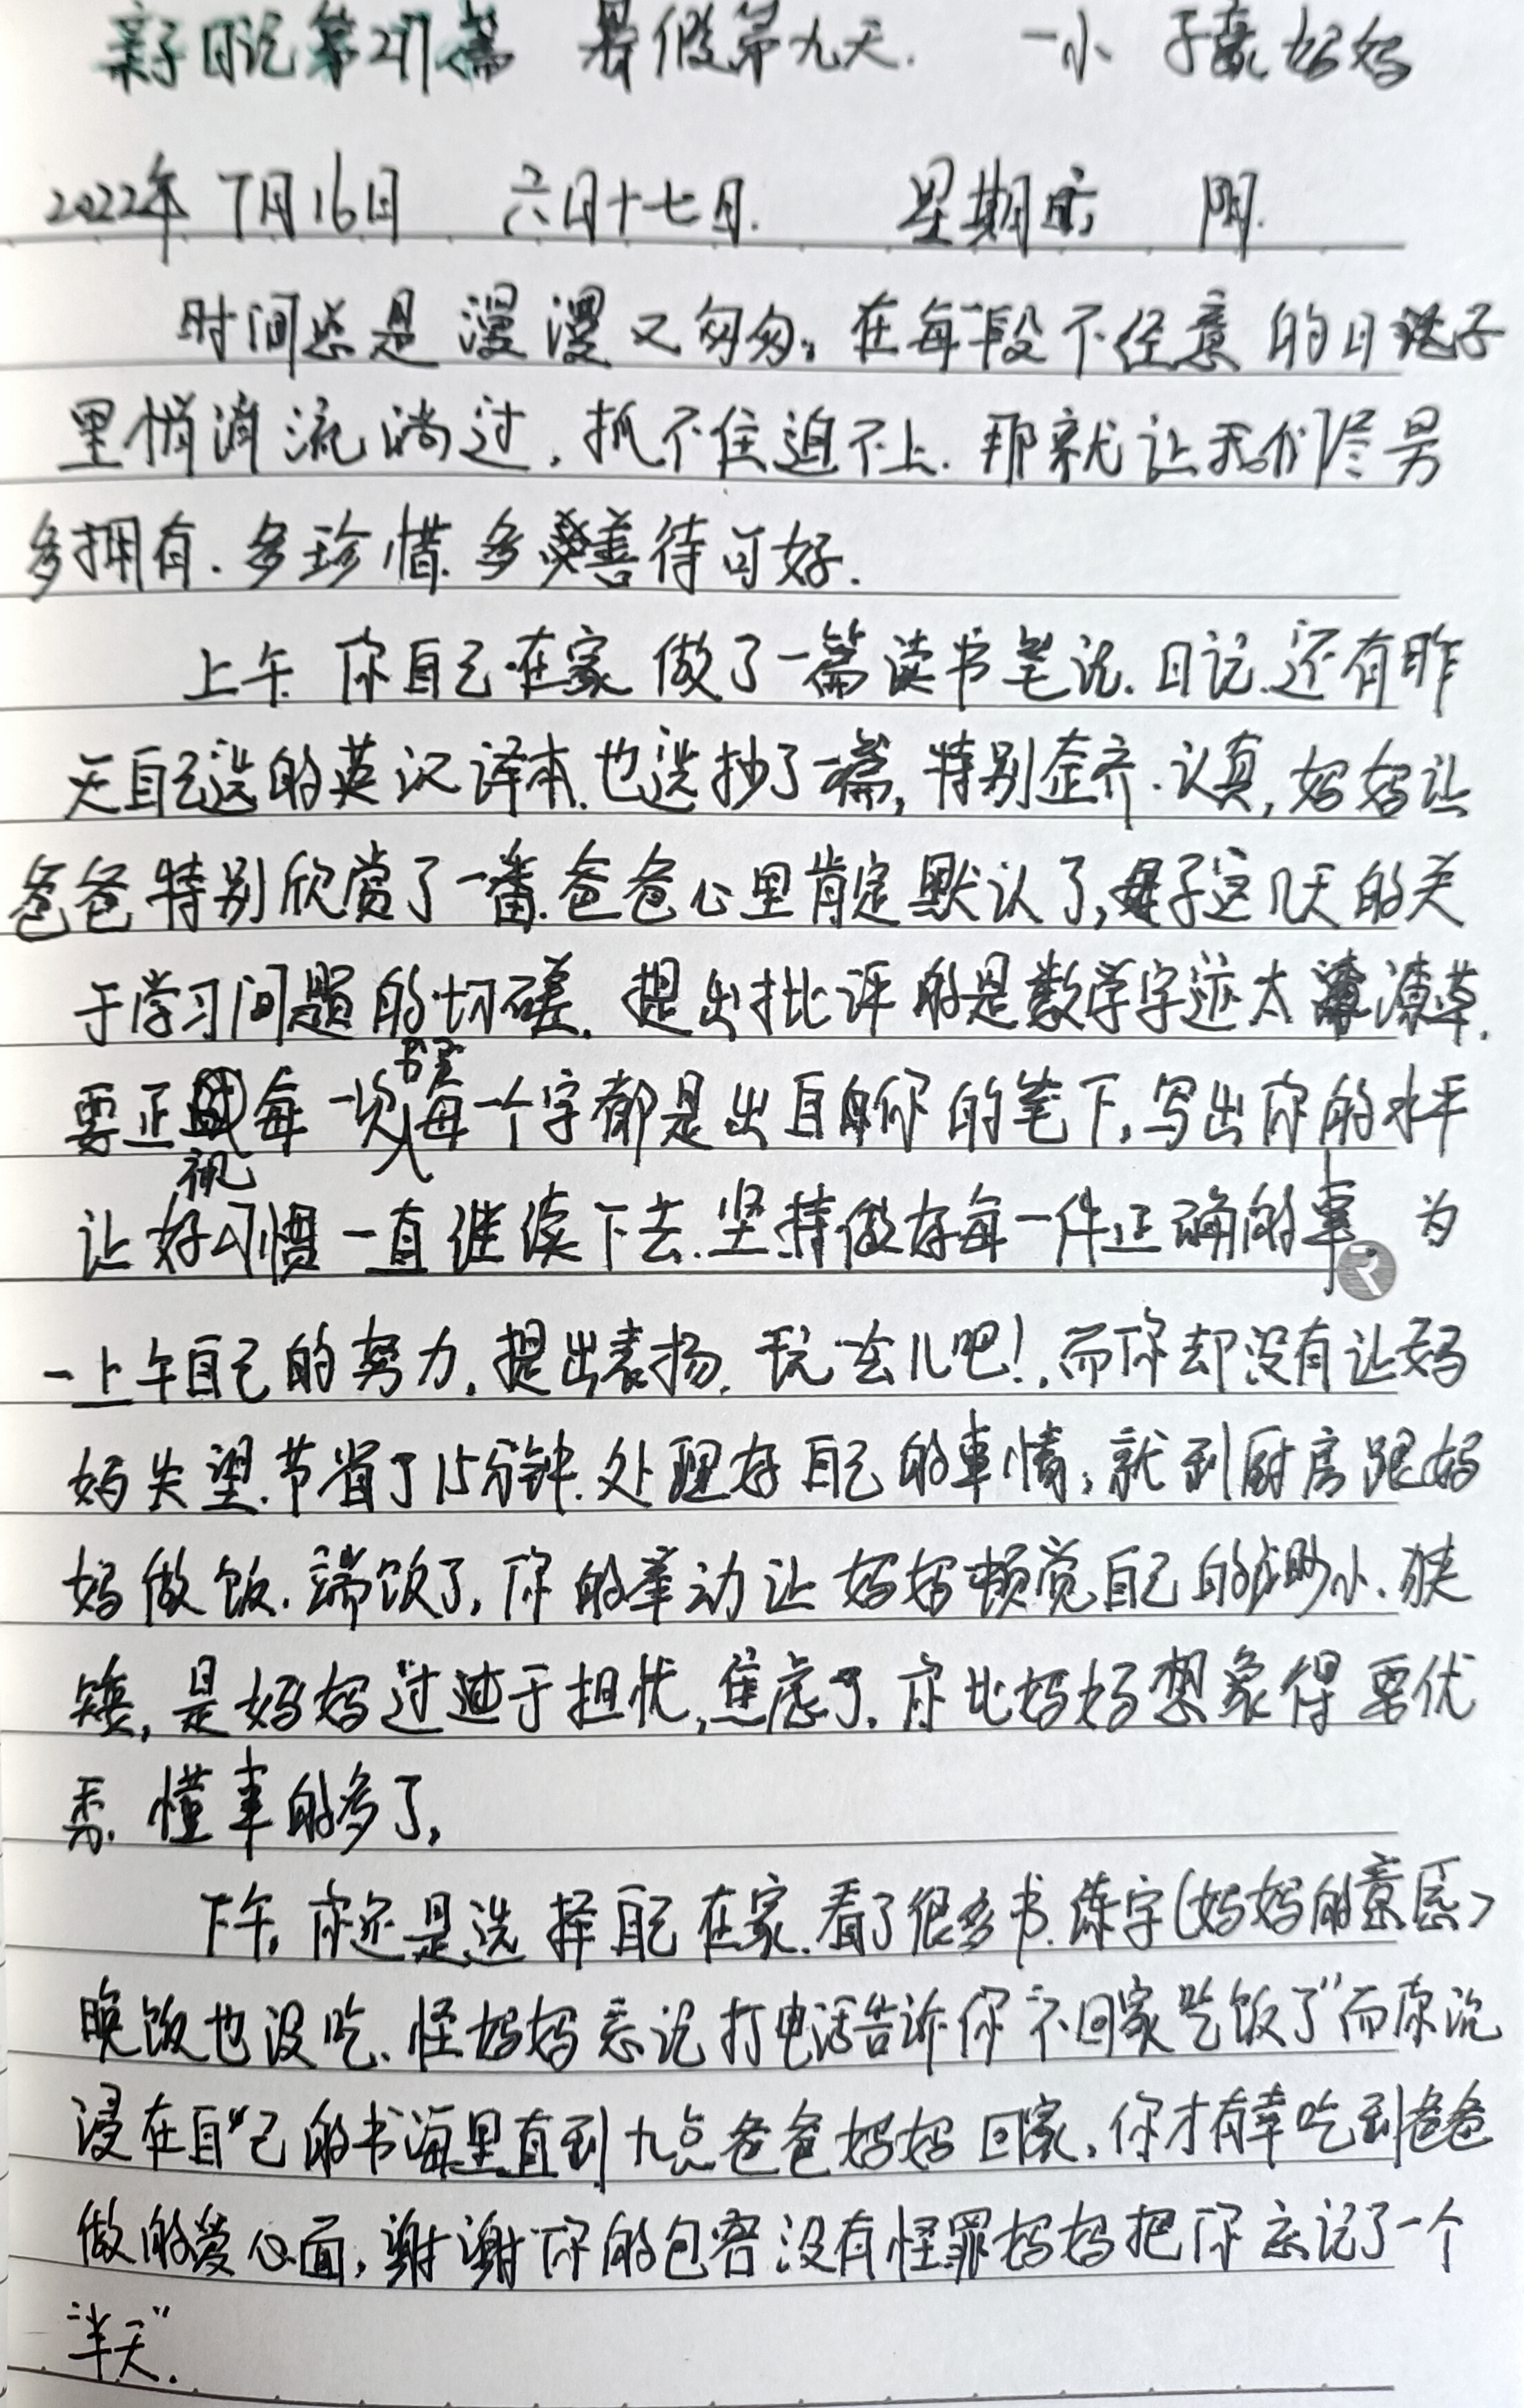 亲子日记第271篇 暑假第九天. 一小 子豪妈妈
2022年7月16日 六月十七日. 星期六 阴.
时间总是漫漫又匆匆,在每一段不经意的日子
里悄消流淌过,抓不住追不上.那就让我们尽另
多拥有.多珍惜.多善待可好.
上午.你自己在家做了一篇读书笔记.日记.还有昨
天自己选的英汉译本.也选抄了一篇,特别整齐.认真,妈妈让
爸爸特别欣赏了一番.爸爸心里肯定默认了,母子这几天的关
于学习问题的切磋.提出批评的是数学字迹太潦草.
要正视每一次书写每一个字都是出自你的笔下,写出你的水平
让好习惯一直继续下去.坚持做好每一件正确的事,为
一上午自己的努力.提出表扬.玩会儿吧!.而你却没有让妈
妈失望.节省了15分钟.处理好自己的事情,就到厨房跟妈
妈做饭.端饭了,你的举动让妈妈顿觉自己的渺小.狭
矮,是妈妈过于担忧,焦虑了.你比妈妈想象得要优
秀.懂事的多了,
下午,你还是选择自己在家.看了很多书.练字(妈妈的意愿)
晚饭也没吃.怪妈妈忘记打电话告诉你"不回家吃饭了"而你沉
浸在自己的书海里直到九点爸爸妈妈回家,你才有幸吃到爸爸
做的爱心面,谢谢你的包容没有怪罪妈妈把你忘记了一个
"半天".